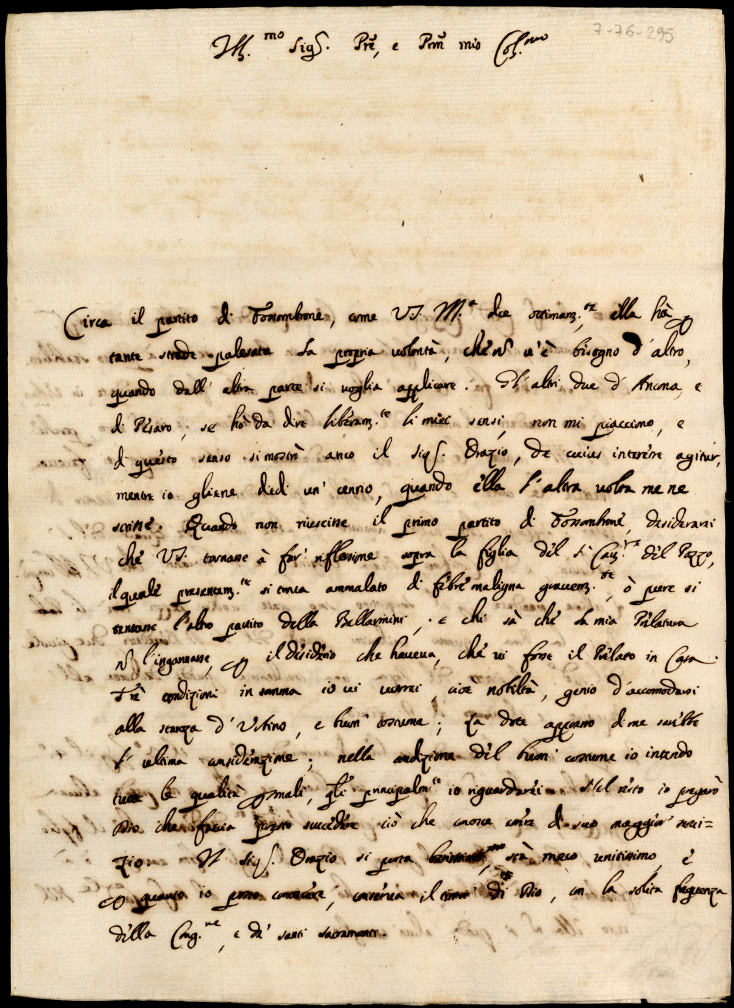 7-76-295
Ill.mo Sig.r Prê, e Prôn mio Col.mo
Circa il partito di Fossombrone, come VS. Ill.ma due settiman.e, ella hà p
tante strade palesata la propria volontà, che ñ v'è bisogno d'altro,
quando dall'altra parte si voglia applicare. Gl'altri due d'Ancona, e
di Pesaro, se hò da dire liberam.te li miei sensi, non mi piacciono, e
di questo senso si mostrò anco il Sig.r Orazio, de cuius interesse agitur,
mentre io gliene diedi un' cenno, quando ella l'altra volta me ne
scrisse. Quando non riuscisse il primo partito di Fossombrone, desiderarei
che VS. tornasse à far' riflessione sopra la figlia del S. Cav.re del Pozzo,
il quale presentem.te si trova ammalato di febre maligna gravem.te, ò pure si
tentasse l'altro partito della Bellarmini; e chi sà che la mia Prelatura
ñ l'ingannasse, p il desiderio che haveva, che vi fosse il Prelato in Casa.
Trè condizioni in somma io ci vorrei, cioè nobiltà, genio d'accomodarsi
alla stanza d'Urbino, e buon' costume; La dote appresso di me sarebbe
l'ultima considerazione; nella condizione del buon' costume io intendo
tutte le qualità p̄sonali, q̃li principalm.te io riguardarei. Del resto io pregarò
Dio che faccia succedere ciò che conosce essere di suo maggior servi=
zio. Il Sig.r Orazio si porta stà meco unitissimo, e
p quanto io posso conoscere, conserva il timor' di Dio, con la solita frequenza
della Cong.ne, e de' santi sacramenti.